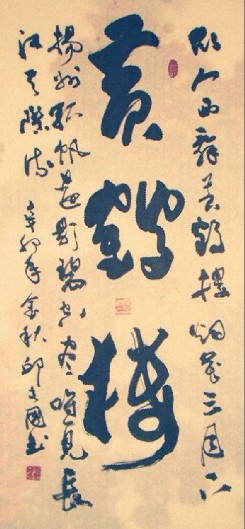 黄鹤楼
故人西辞黄鹤楼烟花三月下
扬州孤帆远影碧空尽唯见长
江天际流 辛卯年金秋邱文国书